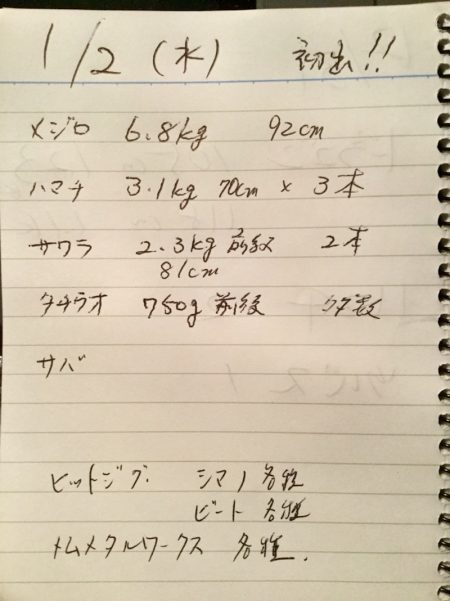 1/2 (水) 初出!!
メジロ 6.8kg 92cm
ハマチ 3.1kg 70cm × 3本
サワラ 2.3kg 前後 2本
81cm
タチウオ 750g 前後 多数
サバ
ヒットジグ シマノ各種
ビート各種
メタルワークス 各種.